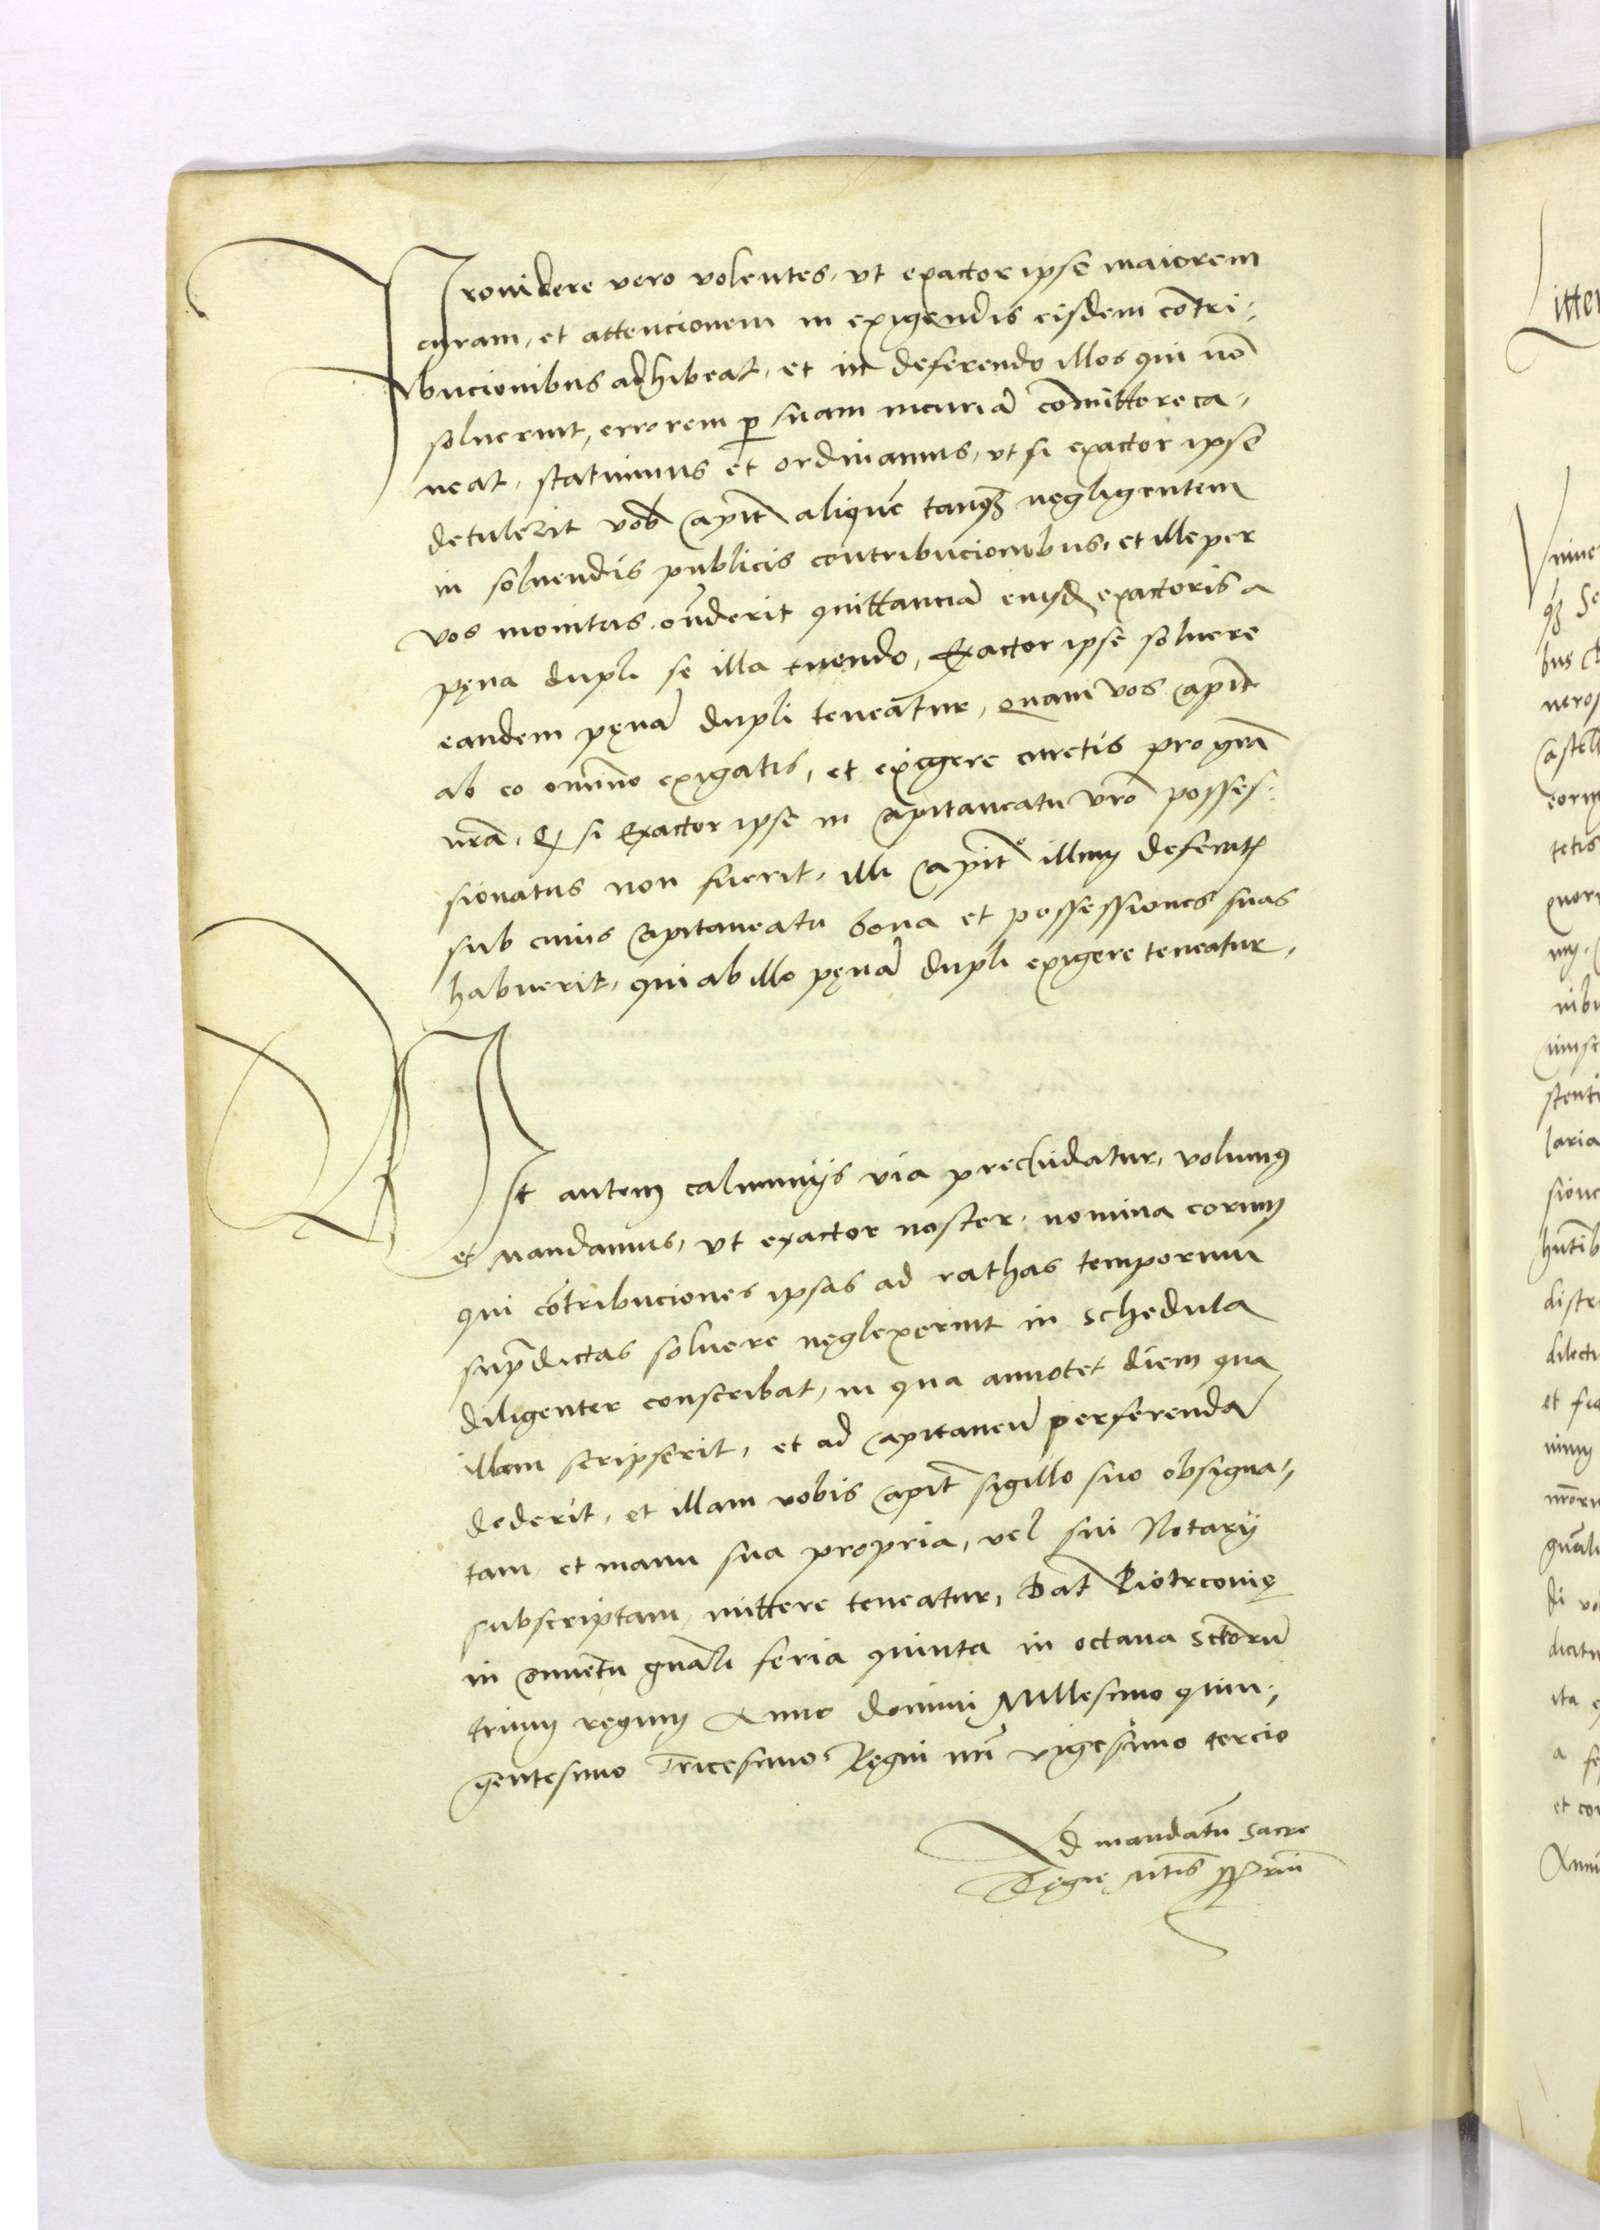 Prouidere vero volentes, vt exactor ipse maiorem
curam, et attencionem in exigendis eisdem cōtri-
bucionibus adhibeat, et in deferendo illos qui nō
soluerint, errorem ꝑ suam incuriā cōmittere ca-
ueat, statuimus et ordinamus, vt si exactor ipse
detulerit vob Capit aliquē tanqȝ negligentem
in soluendis publicis contribucionibus, et ille per
vos monitus oñderit quittanciā eiusd exactoris a
pęna dupli se illa tuendo, Exactor ipse soluere
eandem pęnā dupli teneatur, quam vos Capit
ab eo omīno exigatis, et exigere curetis pro grā
nrā, Qȝ si Exactor ipse in Capitaneatu vrō posses-
sionatus non fuerit, illi Capitº illum deferatis
sub cuius Capitaneatu bona et possessiones suas
habuerit, qui ab illo pęnā dupli exigere teneatur,
Vt autem calumnijs via precludatur, volumus
et mandamus, vt exactor noster, nomina eorum
qui cōtribuciones ipsas ad rathas temporum
supradictas soluere neglexerint in schedula
diligenter conscribat, in qua annotet diem qua
illam scripserit, et ad Capitaneū perferendā
dederit, et illam vobis Capit sigillo suo obsigna-
tam, et manu sua propria, vel sui Notarij
subscriptam, mittere teneatur, Dat Piotrconię
in Conuētu gnāli feria quinta in octaua sctōrū
trium regum Anno domini Millesimo quin-
gentesimo Tricesimo, Regni nri vigesimo tercio
Ad mandatū sacre
Regię Mtis ꝓpriū